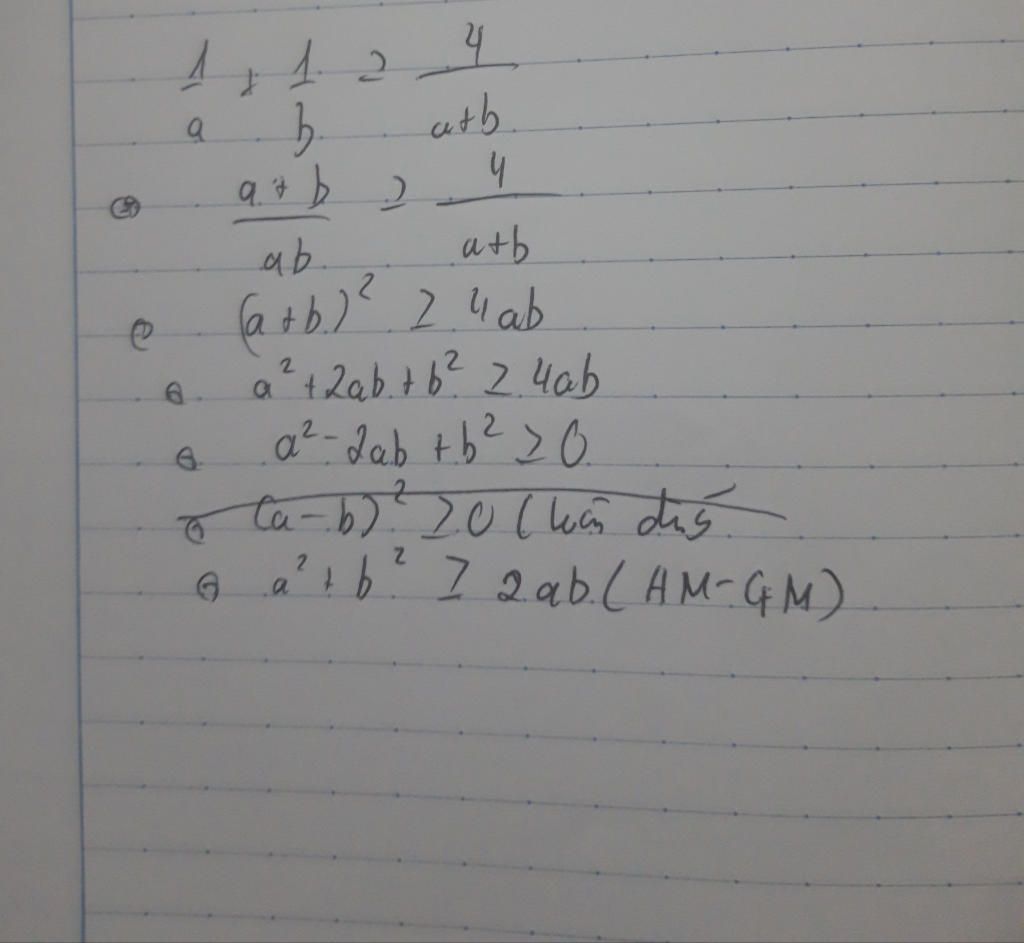 1/a + 1/b ≥ 4/(a+b)
⇔ (a+b)/ab ≥ 4/(a+b)
⇔ (a+b)² ≥ 4ab
⇔ a² + 2ab + b² ≥ 4ab
⇔ a² - 2ab + b² ≥ 0
⇔ (a-b)² ≥ 0 (
⇔ a² + b² ≥ 2ab (AM-GM)